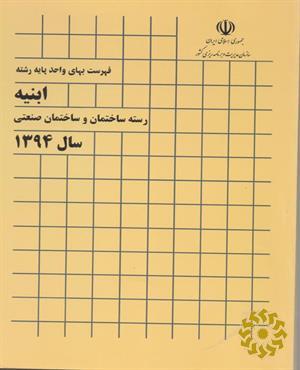 جمهوری اسلامی ایران
سازمان مدیریت و برنامه ریزی کشور
فهرست بهای واحد پایه رشته
ابنیه
رسته ساختمان و ساختمان صنعتی
سال ۱۳۹۴